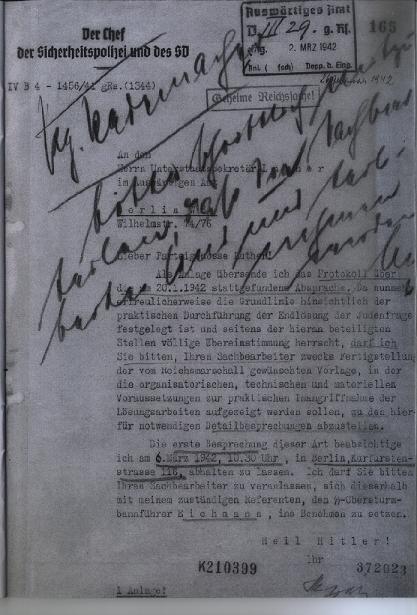 Auswärtiges Amt
D. III 29. g. Rs.
2. MRZ 1942
Anl. ( fach) Dopp. d. Eing.
165
Der Chef
der Sicherheitspolizei und des SD
IV B 4 - 1456/41 gRs. (1344)
1942
Geheime Reichssache!
An den
Herrn Unterstaatssekretär L u t h e r
im Auswärtigen Amt
B e r l i n
Wilhelmstr. 74/76
Lieber Parteigenosse Luther!
Als Anlage übersende ich das Protokoll über
die am 20.1.1942 stattgefundene Absprache. Da nunmehr
erfreulicherweise die Grundlinie hinsichtlich der
praktischen Durchführung der Endlösung der Judenfrage
festgelegt ist und seitens der hieran beteiligten
Stellen völlige Übereinstimmung herrscht, darf ich
Sie bitten, Ihren Sachbearbeiter zwecks Fertigstellung
der vom Reichsmarschall gewünschten Vorlage, in der
die organisatorischen, technischen und materiellen
Voraussetzungen zur praktischen Inangriffnahme der
Lösungsarbeiten aufgezeigt werden sollen, zu den hier-
für notwendigen Detailbesprechungen abzustellen.
Die erste Besprechung dieser Art beabsichtige
ich am 6. März 1942, 10.30 Uhr, in Berlin, Kurfürsten-
strasse 116, abhalten zu lassen. Ich darf Sie bitten
Ihren Sachbearbeiter zu veranlassen, sich dieserhalb
mit meinem zuständigen Referenten, dem SS-Obersturm-
bannführer E i c h m a n n , ins Benehmen zu setzen.
Heil Hitler!
Ihr
K210399
372023
1 Anlage!